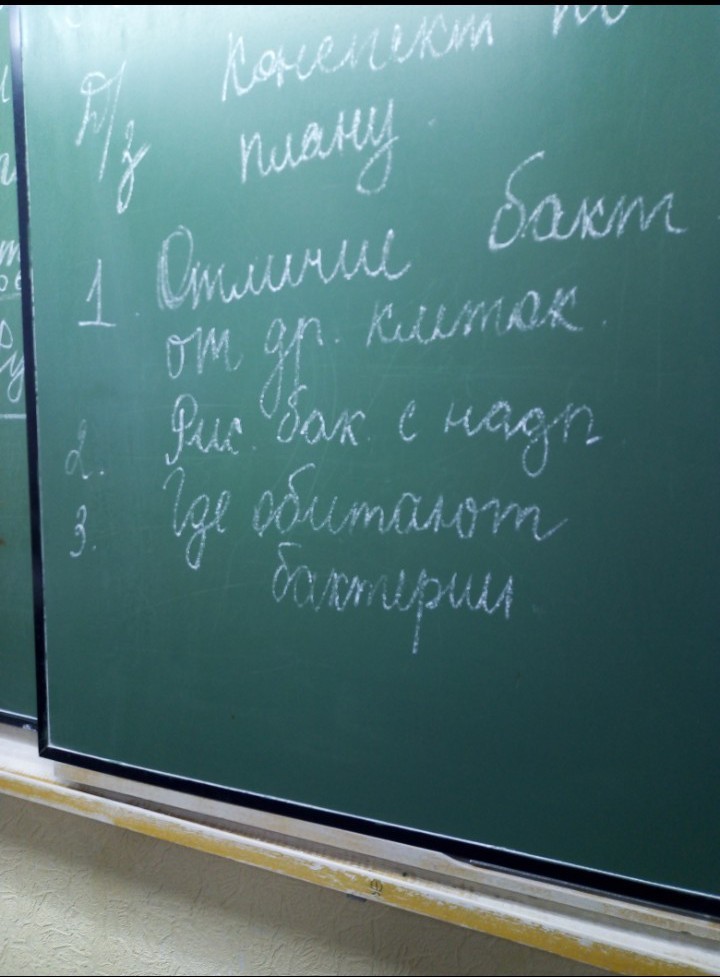 Д/з Конспект по
плану.
1. Отличие бакт
от др. клеток.
2. Рис. бак. с надп
3. Где обитают
бактерии